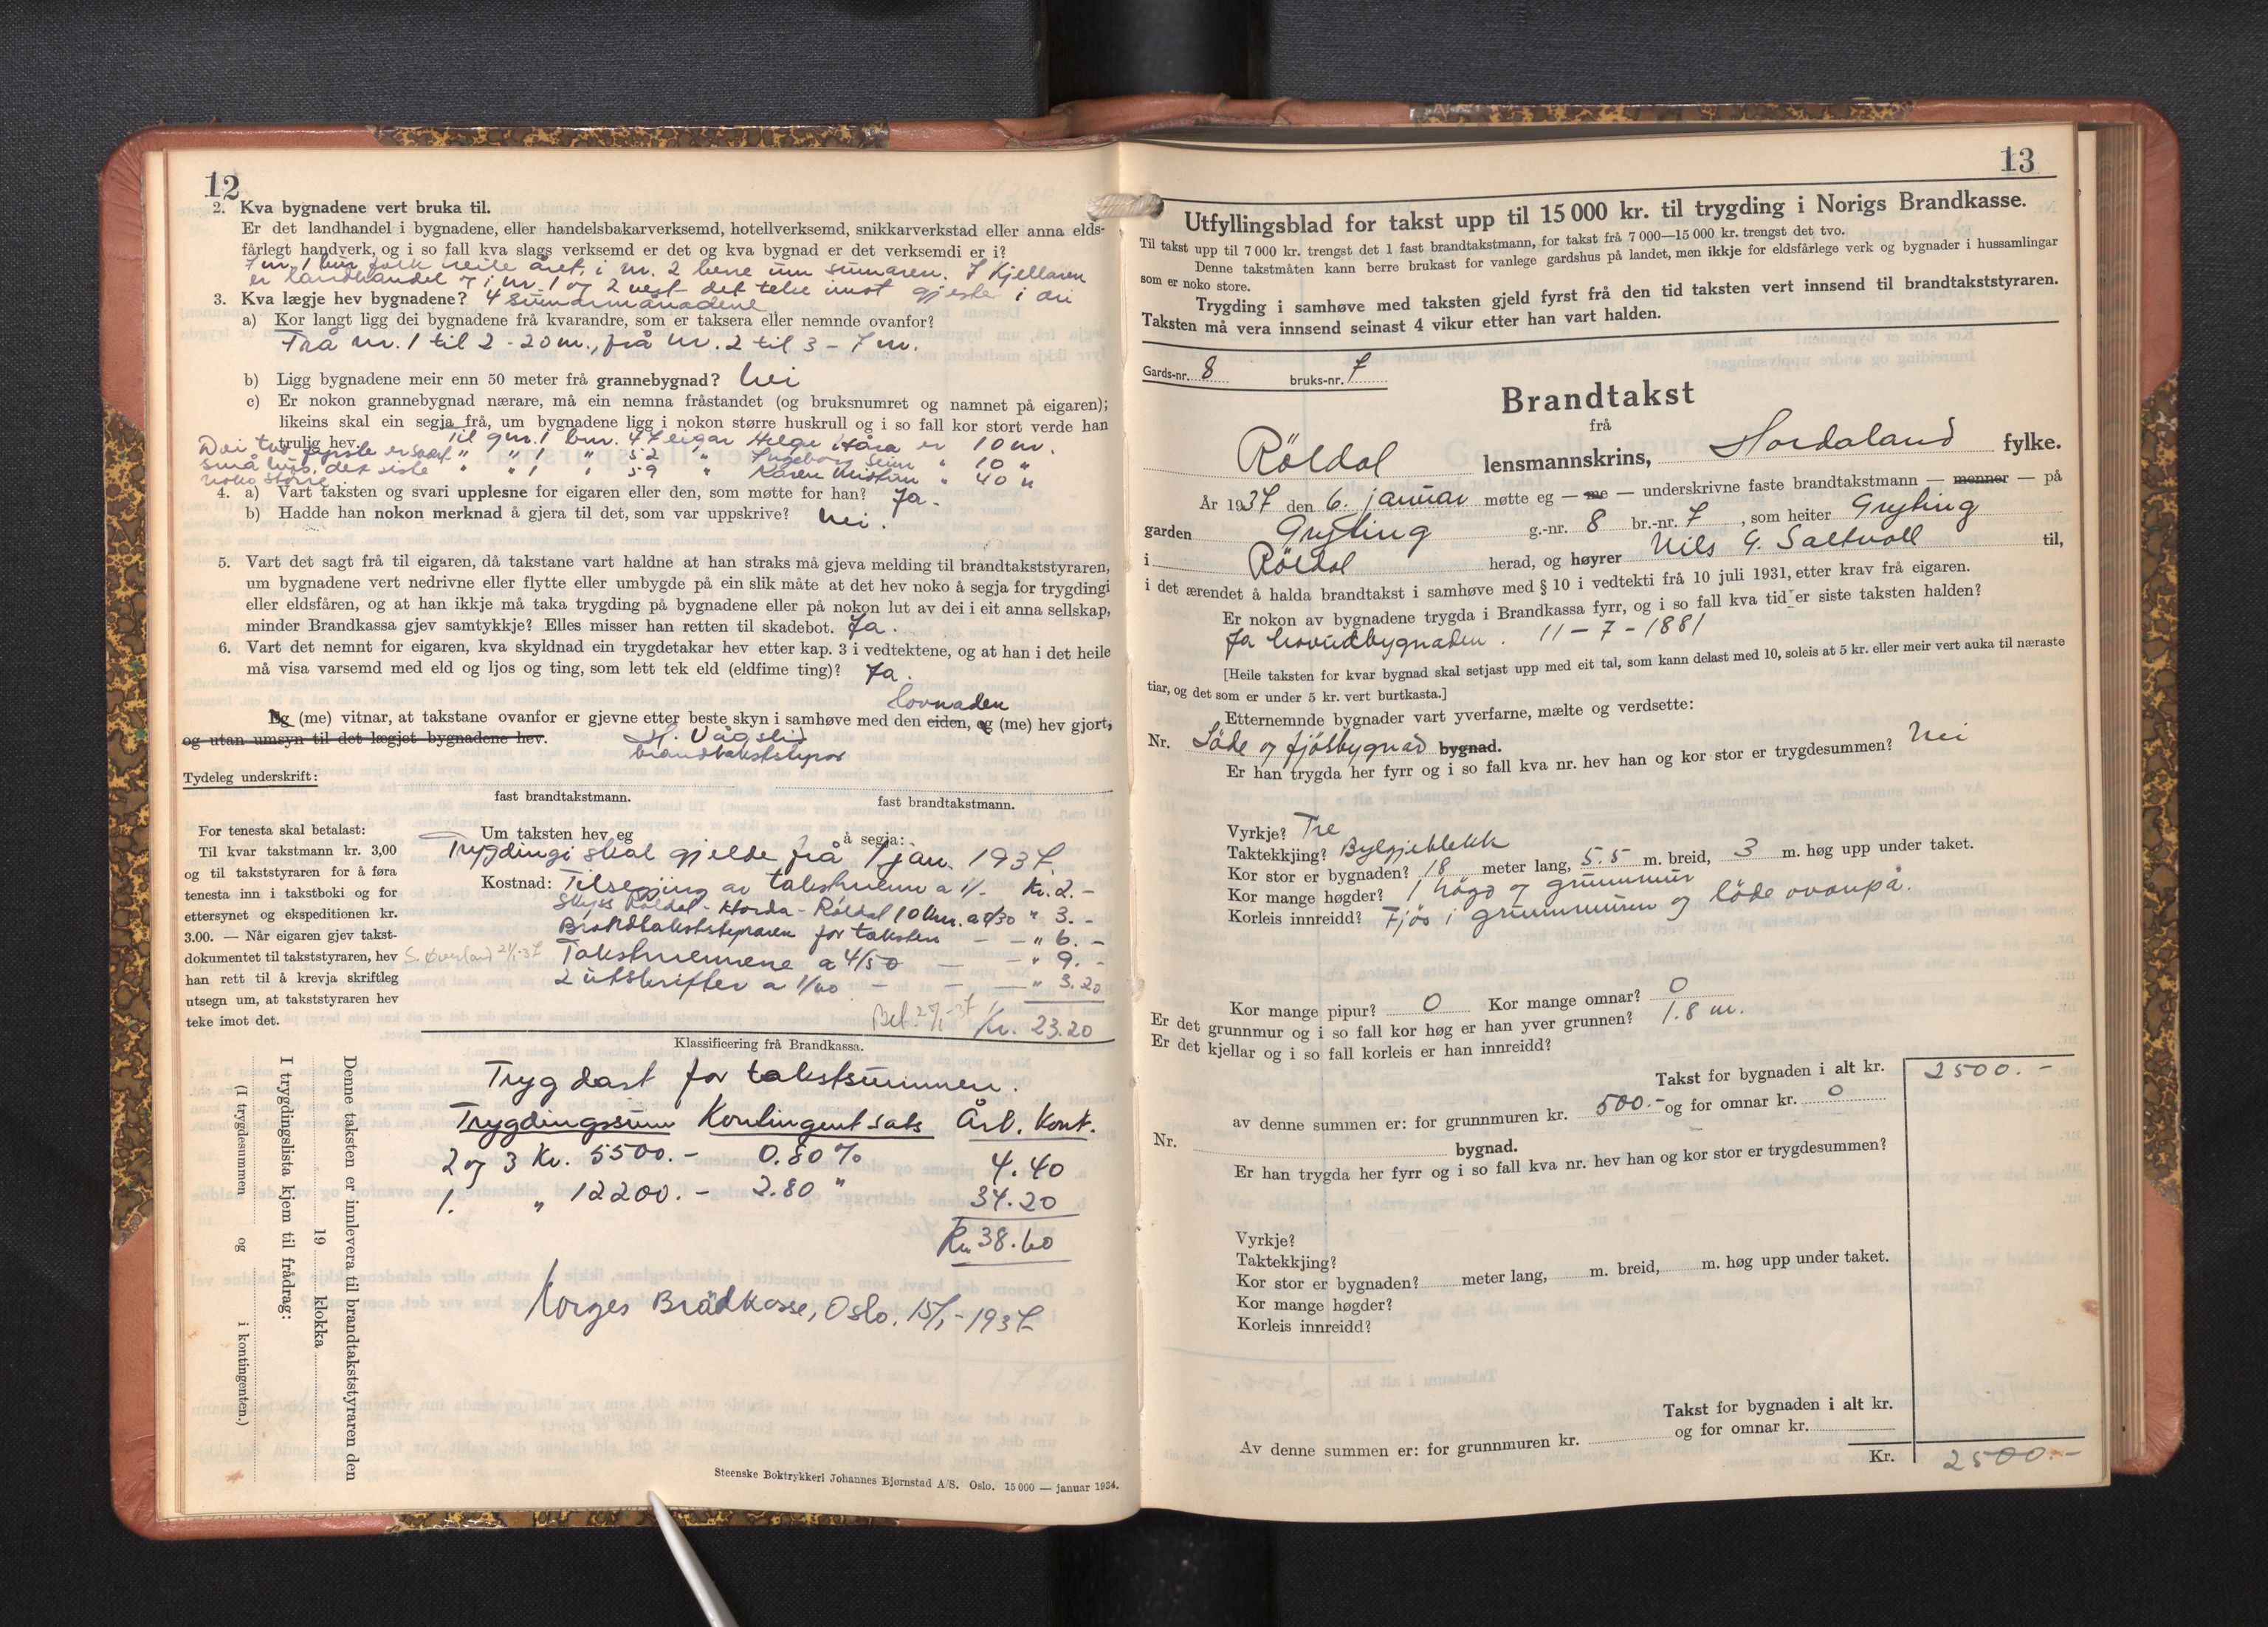 12
2. Kva bygnadene vert bruka til.
Er det landhandel i bygnadene, eller handelsbakarverksemd, hotellverksemd, snikkarverkstad eller anna elds-
fårlegt handverk, og i so fall kva slags verksemd er det og kva bygnad er det verksemdi er i?
I nr. 1 bur folk heile året, i nr. 2 bere um sumaren. I Kjellaren
er landhandel og i nr. 1 og 2 vert det teke imot gjester i dei
3. Kva lægje hev bygnadene? 4 sumarmånadene
a) Kor langt ligg dei bygnadene frå kvarandre, som er taksera eller nemnde ovanfor?
Frå nr. 1 til 2 - 20 m., frå nr. 2 til 3 - 7 m.
b) Ligg bygnadene meir enn 50 meter frå grannebygnad? Nei
c) Er nokon grannebygnad nærare, må ein nemna fråstandet (og bruksnumret og namnet på eigaren);
likeins skal ein segja frå, um bygnadene ligg i nokon større huskrull og i so fall kor stort verde han
trulig hev. Til gnr. 1 bnr. 47 eigar Helge Håra er 10 m.
Dei tvo fyrste er svært " " 1 " 52 " Ingeborg Seim " 10 "
små hus, det siste " " 1 " 59 " Karen " 40 "
noko større.
4. a) Vart taksten og svari upplesne for eigaren eller den, som møtte for han? Ja.
b) Hadde han nokon merknad å gjera til det, som var uppskrive? Nei.
5. Vart det sagt frå til eigaren, då takstane vart haldne at han straks må gjeva melding til brandtakststyraren,
um bygnadene vert nedrivne eller flytte eller umbygde på ein slik måte at det hev noko å segja for trygdingi
eller eldsfåren, og at han ikkje må taka trygding på bygnadene eller på nokon lut av dei i eit anna sellskap,
minder Brandkassa gjev samtykkje? Elles misser han retten til skadebot. Ja.
6. Vart det nemnt for eigaren, kva skyldnad ein trygdetakar hev etter kap. 3 i vedtektene, og at han i det heile
må visa varsemd med eld og ljos og ting, som lett tek eld (eldfime ting)? Ja.
lovnaden
Eg (me) vitnar, at takstane ovanfor er gjevne etter beste skyn i samhøve med den eiden, eg (me) hev gjort,
og utan umsyn til det lægjet bygnadene hev. H. Vågslid
brandtakststyrar
Tydeleg underskrift:
fast brandtakstmann. fast brandtakstmann.
For tenesta skal betalast:
Til kvar takstmann kr. 3,00
og til takststyraren for å føra
tenesta inn i takstboki og for
ettersynet og ekspeditionen kr.
3.00. — Når eigaren gjev takst-
dokumentet til takststyraren, hev
han rett til å krevja skriftleg
utsegn um, at takststyraren hev
teke imot det.
Um taksten hev eg å segja:
Trygdingi skal gjelde frå 1 jan. 1937.
Kostnad: Tilsegjing av takstmenn a 1/- Kr. 2.-
Skyss Röldal - Horda - Röldal 10 km. a 0/30 " 3.-
Brandtakststyraren for taksten — — " 6.-
Takstmennene a 4/50 — — " 9.-
2 utskrifter a 1/60 - - - " 3.20
Kr. 23.20
Klassificering frå Brandkassa.
Trygdast for takstsummen.
Trygdingssum Kontingentsats Årl. Kont.
2 og 3 Kr. 5500.- 0.80 % 4.40
1. " 12200.- 2.80 " 34.20
Kr. 38.60
Norges Brandkasse, Oslo, 15/1-1937
Denne taksten er innlevera til brandtakststyraren den
19 klokka
I trygdingslista kjem til frådrag:
(I trygdesummen og i kontingenten.)
Steenske Boktrykkeri Johannes Bjørnstad A/S. Oslo. 15 000 — januar 1934.
13
Utfyllingsblad for takst upp til 15 000 kr. til trygding i Norigs Brandkasse.
Til takst upp til 7 000 kr. trengst det 1 fast brandtakstmann, for takst frå 7 000—15 000 kr. trengst det tvo.
Denne takstmåten kann berre brukast for vanlege gardshus på landet, men ikkje for eldsfårlege verk og bygnader i hussamlingar
som er noko store.
Trygding i samhøve med taksten gjeld fyrst frå den tid taksten vert innsend til brandtakststyraren.
Taksten må vera innsend seinast 4 vikur etter han vart halden.
Gards-nr. 8 bruks-nr. 7
Brandtakst
frå
Röldal lensmannskrins, Hordaland fylke.
År 1937 den 6. januar møtte eg — me — underskrivne faste brandtakstmann — menner — på
garden Gryting g.-nr. 8 br.-nr. 7, som heiter Gryting
i Röldal herad, og høyrer Nils G. Saltvoll til,
i det ærendet å halda brandtakst i samhøve med § 10 i vedtekti frå 10 juli 1931, etter krav frå eigaren.
Er nokon av bygnadene trygda i Brandkassa fyrr, og i so fall kva tid er siste taksten halden?
Ja hovudbygnaden. 11 - 7 - 1881
[Heile taksten for kvar bygnad skal setjast upp med eit tal, som kann delast med 10, soleis at 5 kr. eller meir vert auka til næraste
tiar, og det som er under 5 kr. vert burtkasta.]
Etternemnde bygnader vart yverfarne, mælte og verdsette:
Nr. Löde og fjösbygnad bygnad.
Er han trygda her fyrr og i so fall kva nr. hev han og kor stor er trygdesummen? Nei
Vyrkje? Tre
Taktekkjing? Bylgjeblekk
Kor stor er bygnaden? 18 meter lang, 5.5 m. breid, 3 m. høg upp under taket.
Kor mange høgder? 1 högd og grunnmur
Korleis innreidd? Fjös i grunnmuren og löde ovanpå.
Kor mange pipur? 0 Kor mange omnar? 0
Er det grunnmur og i so fall kor høg er han yver grunnen? 1.8 m.
Er det kjellar og i so fall korleis er han innreidd?
Takst for bygnaden i alt kr. 2500.-
av denne summen er: for grunnmuren kr. 500.- og for omnar kr. 0
Nr. bygnad.
Er han trygda her fyrr og i so fall kva nr. hev han og kor stor er trygdesummen?
Vyrkje?
Taktekkjing?
Kor stor er bygnaden? meter lang, m. breid, m. høg upp under taket.
Kor mange høgder?
Korleis innreidd?
Takst for bygnaden i alt kr.
Av denne summen er: for grunnmuren kr. og for omnar kr.
Kr. 2500.-